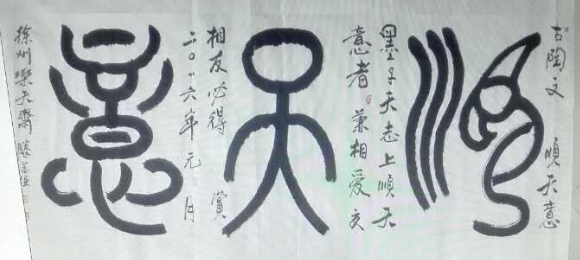 古陶文 順天意
順
墨子天志上順天
意者兼相愛交
天
相必得賞
二〇一六年元月
意
徐州樂天齋